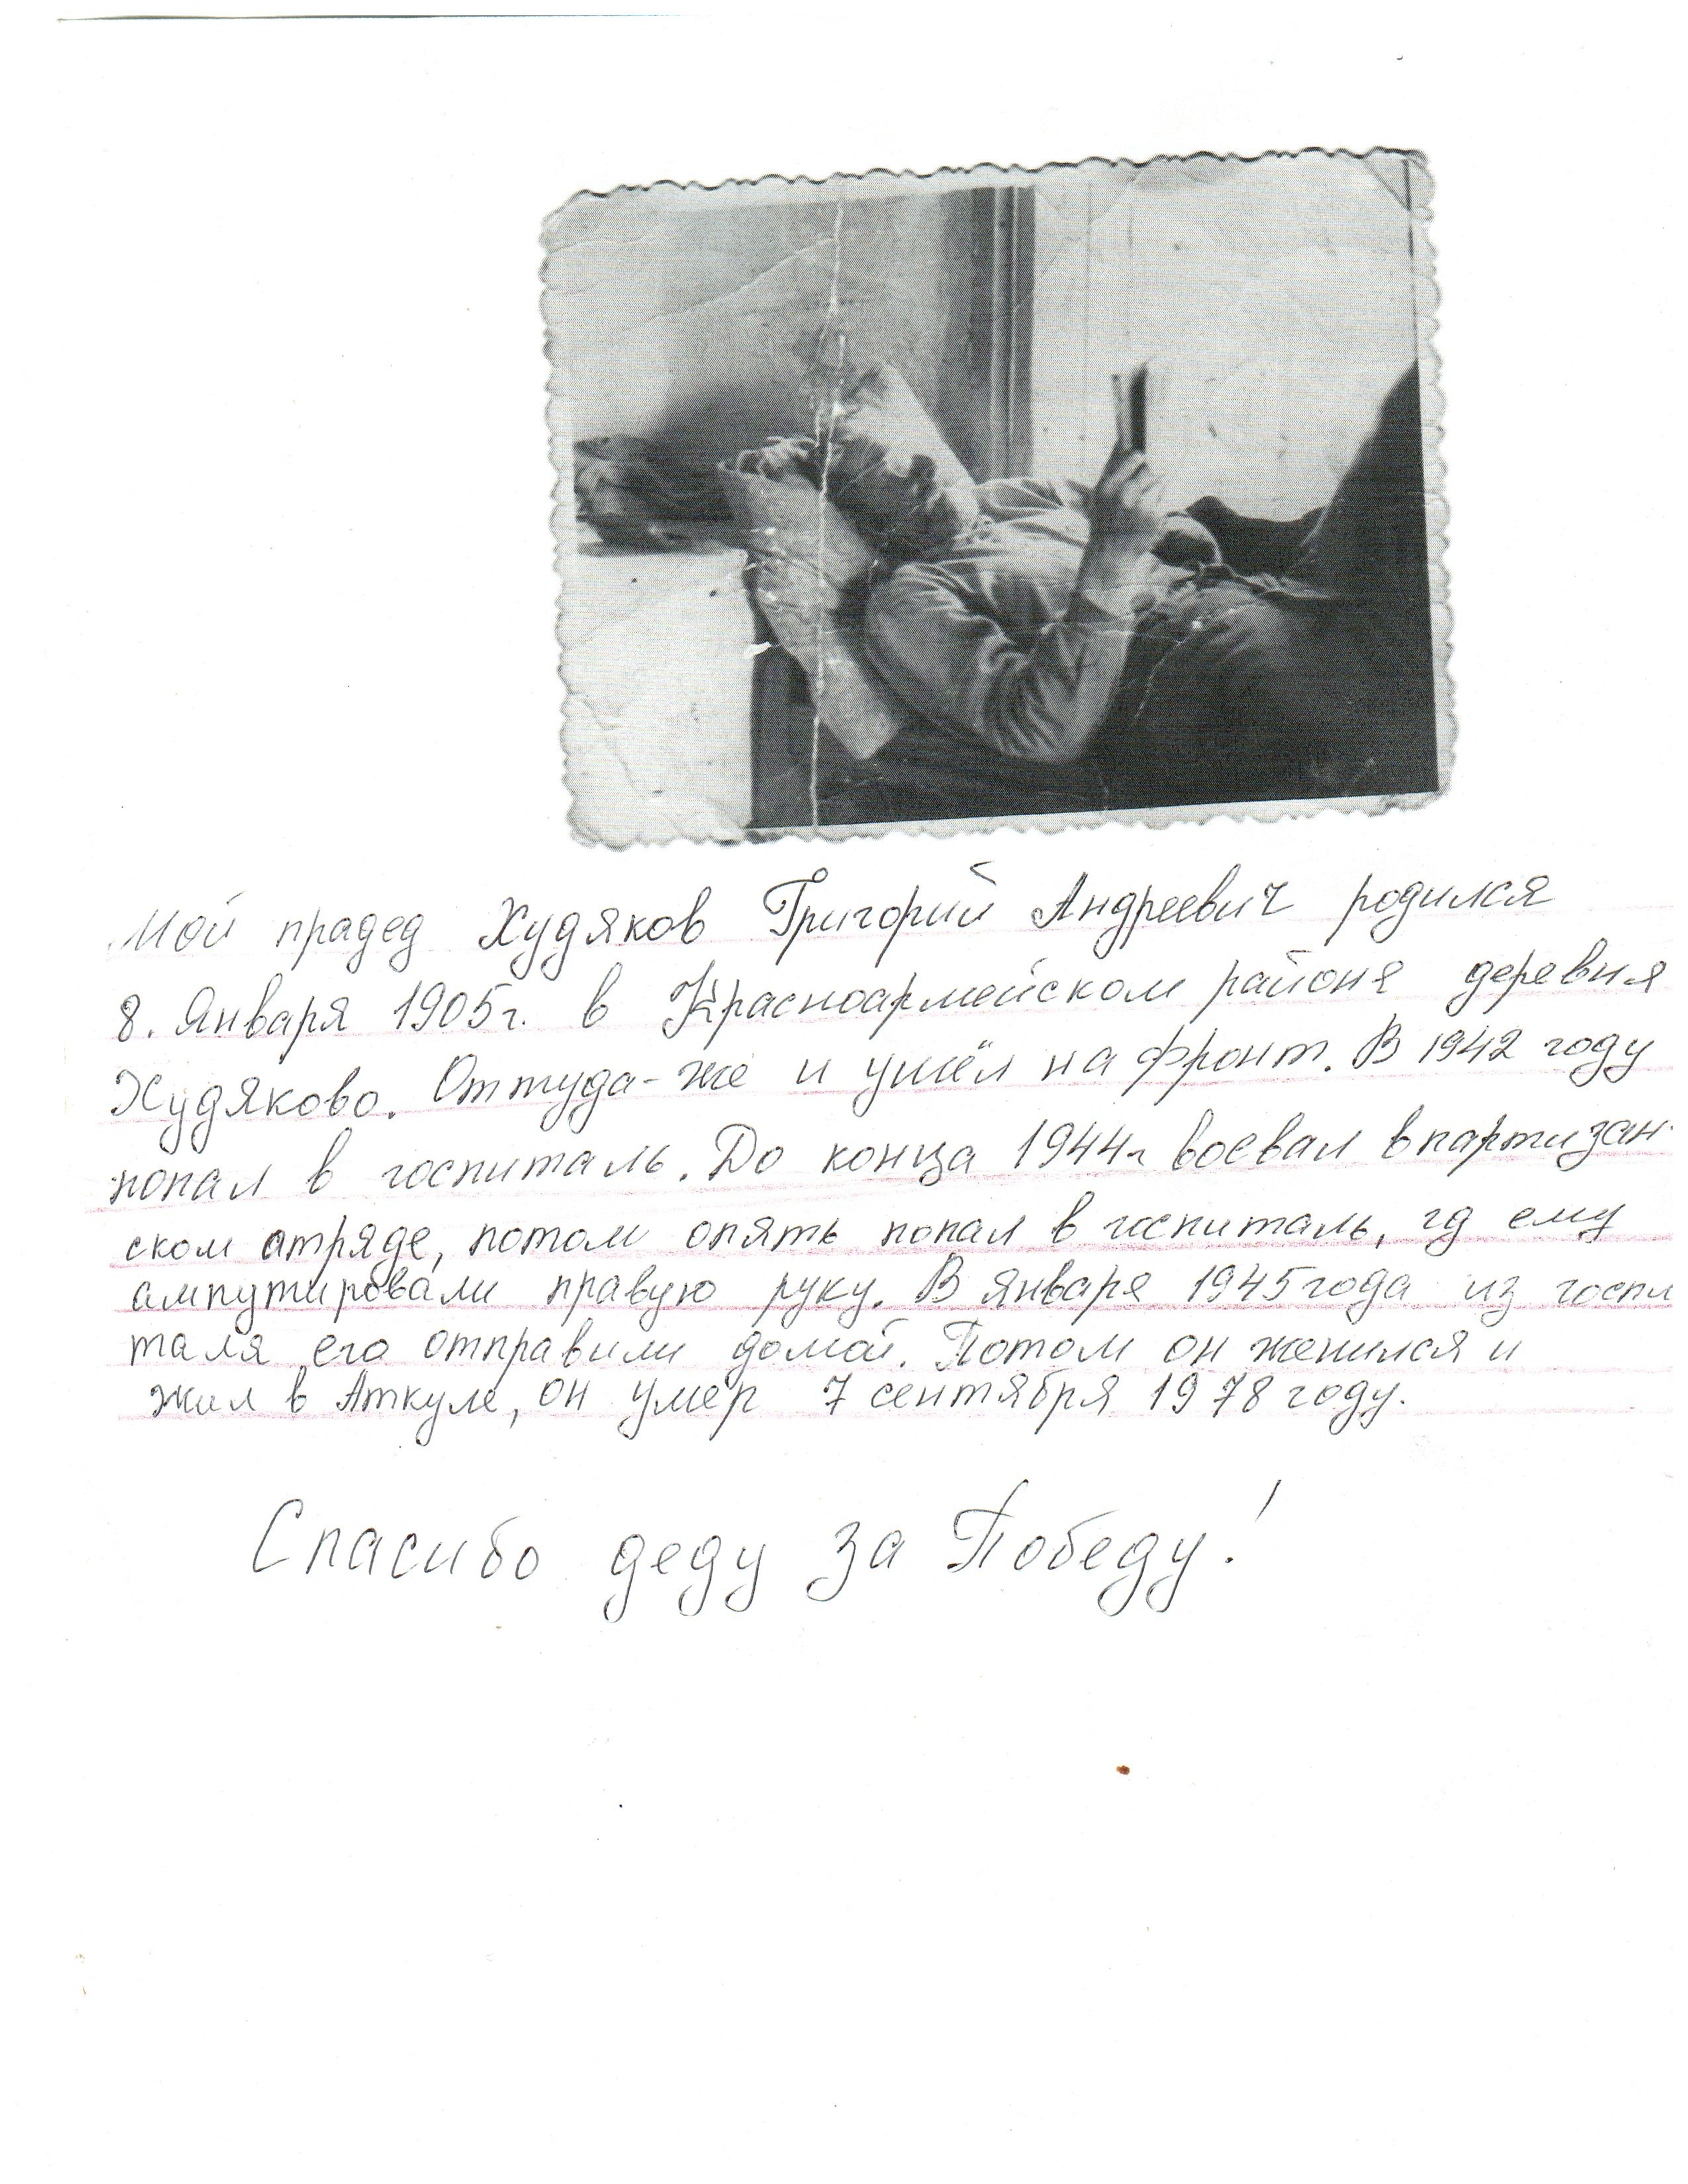 Мой прадед Худяков Григорий Андреевич родился
8. Января 1905г. в Красноармейском районе деревня
Худяково. Оттуда-же и ушёл на фронт. В 1942 году
попал в госпиталь. До конца 1944г воевал в партизан-
ском отряде, потом опять попал в госпиталь, гд ему
ампутировали правую руку. В января 1945 года из госпи
таля его отправили домой. Потом он женился и
жил в Аткуле, он умер 7 сентября 1978 году.
Спасибо деду за Победу!